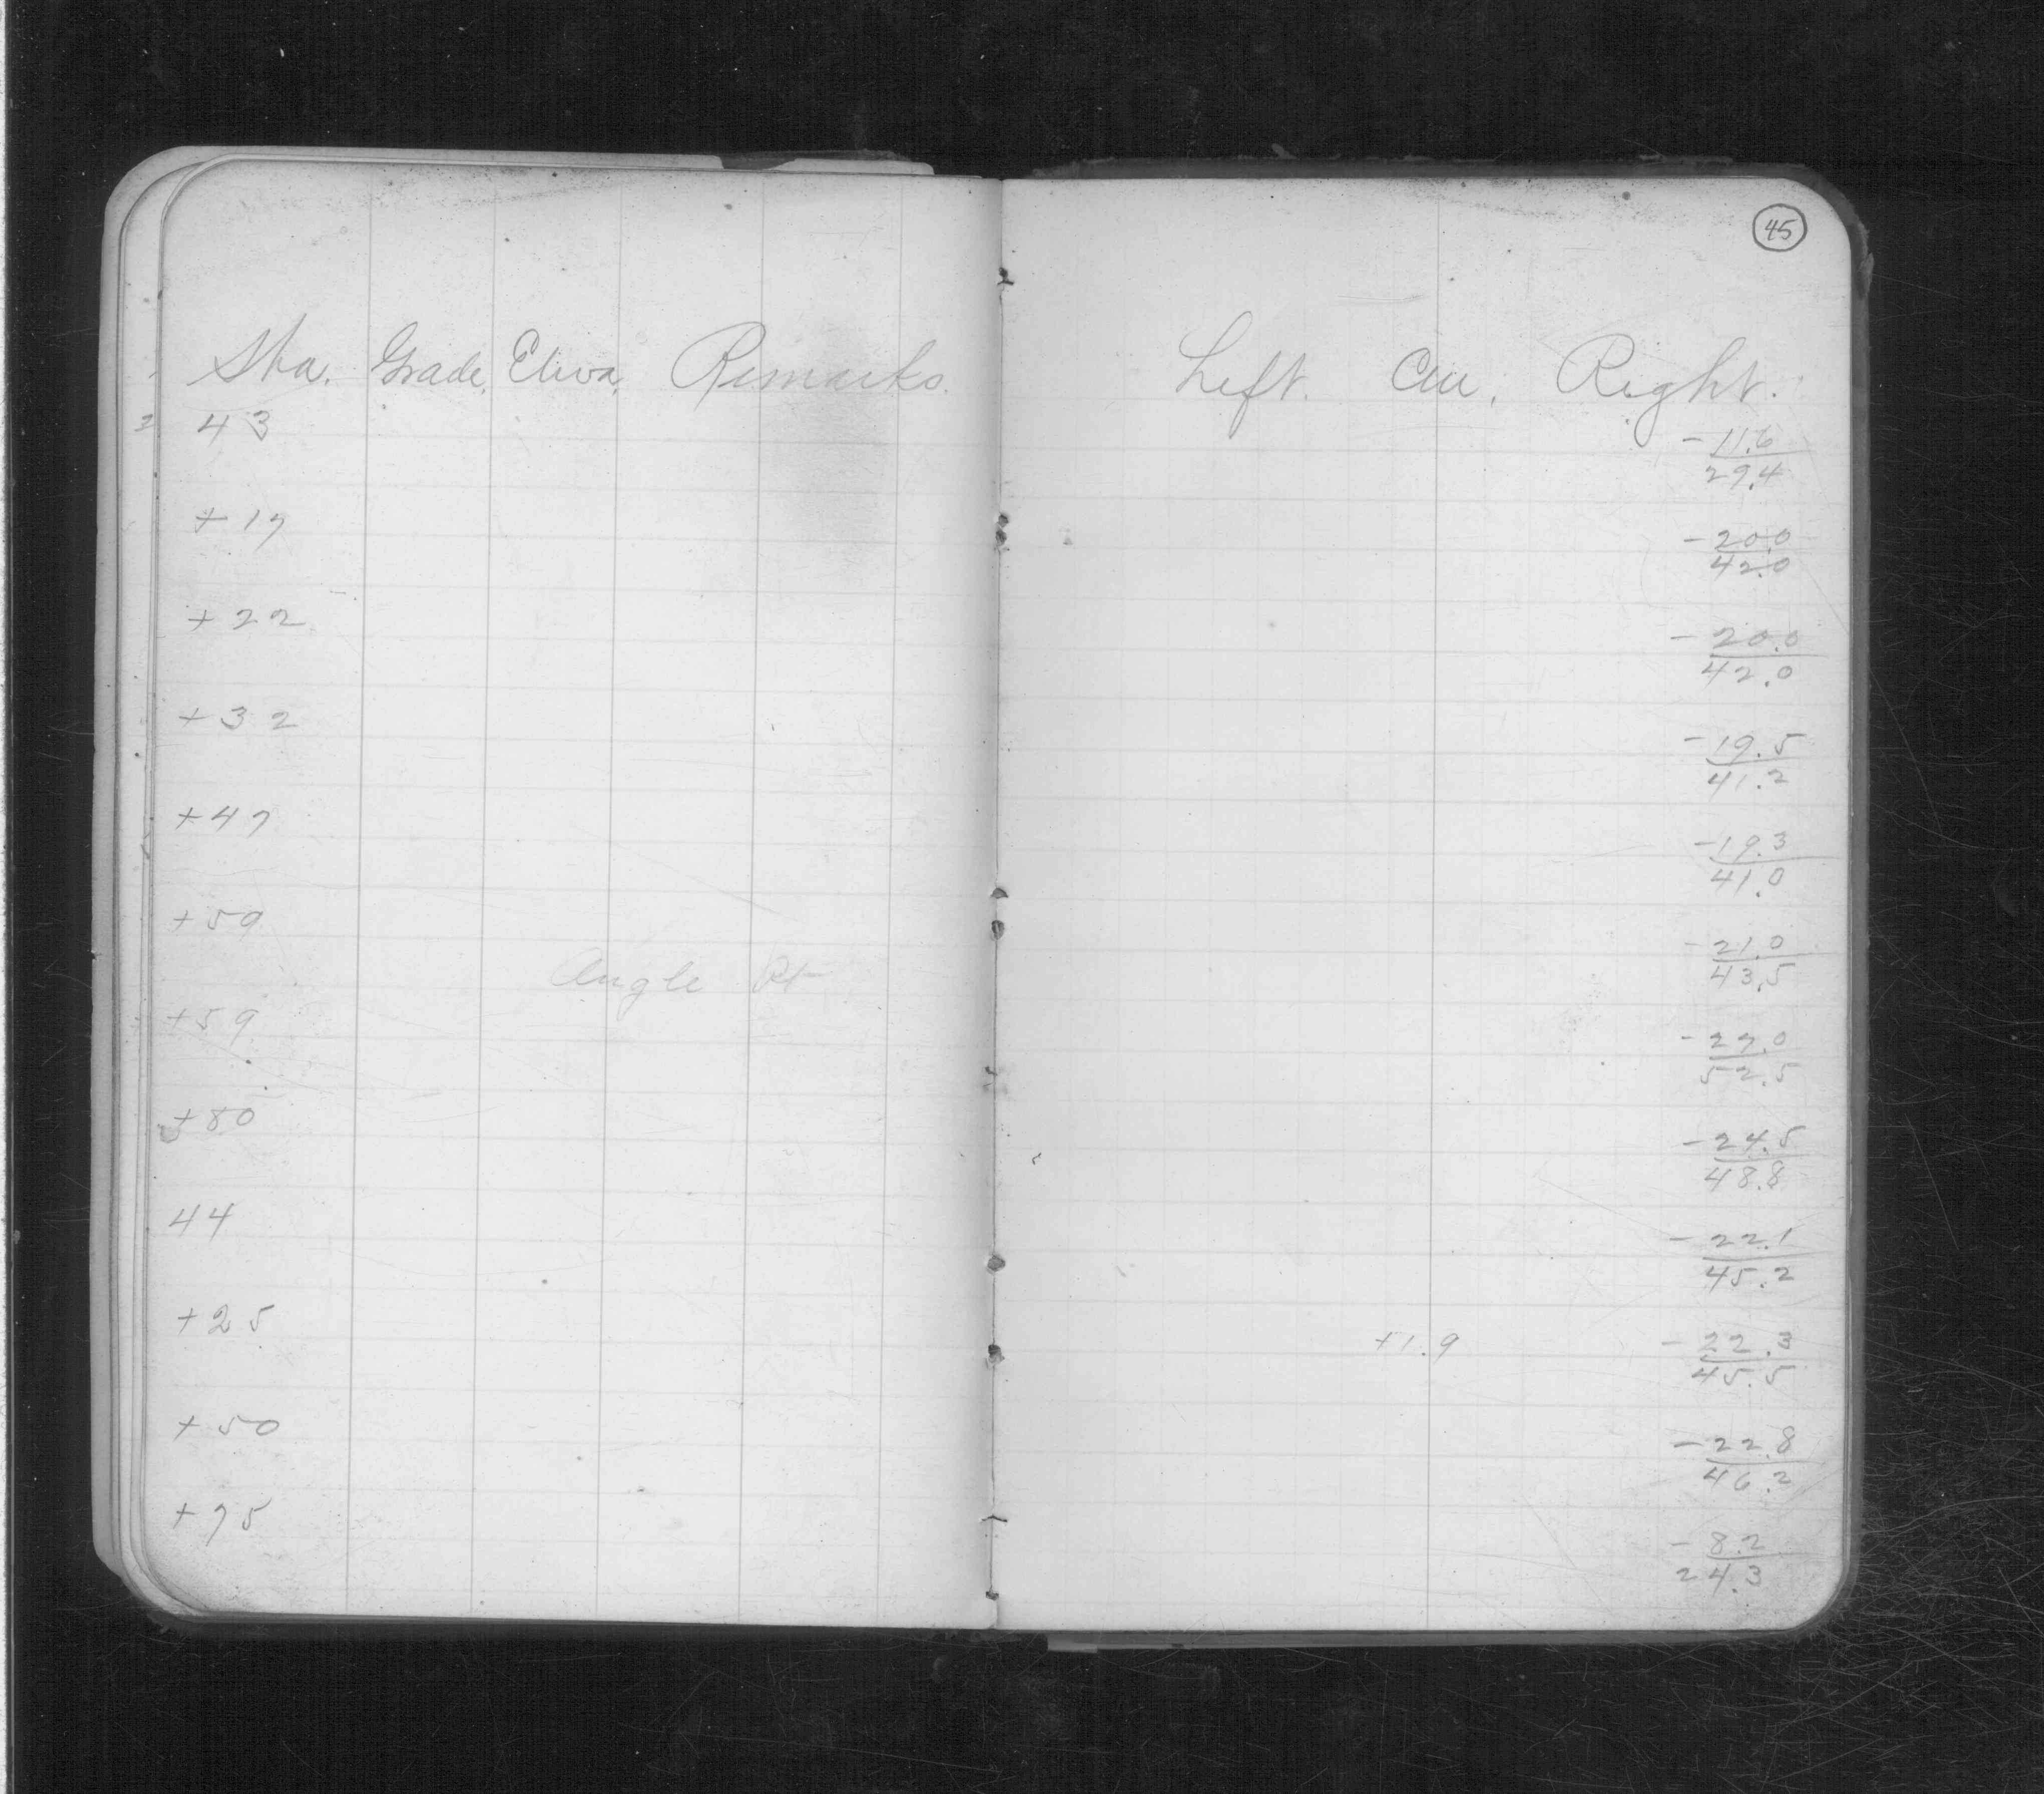 45
Sta. Grade. Eleva. Remarks. Left. Cen. Right.
43 - 11.6
29.4
+17 - 20.0
42.0
+22 - 20.0
42.0
+32 - 19.5
41.2
+47 - 19.3
41.0
+59 - 21.0
43.5
Angle Pt
+59 - 27.0
52.5
+80 - 24.5
48.8
44 - 22.1
45.2
+25 +1.9 - 22.3
45.5
+50 - 22.8
46.2
+75 - 8.2
24.3